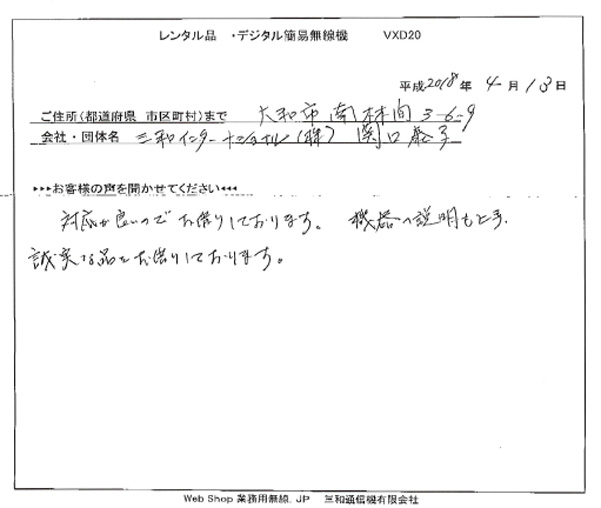 レンタル品 ・デジタル簡易無線機 VXD20
平成 2018 年 4 月 13 日
ご住所(都道府県 市区町村)まで 大和市南林間3-6-9
会社・団体名 三和インターナショナル(株) 関口
▸▸▸お客様の声を聞かせてください◂◂◂
対応が良いのでお借りしております。 機器の説明も
誠実な品をお借りしております。
Web Shop 業務用無線.JP 三和通信機有限会社